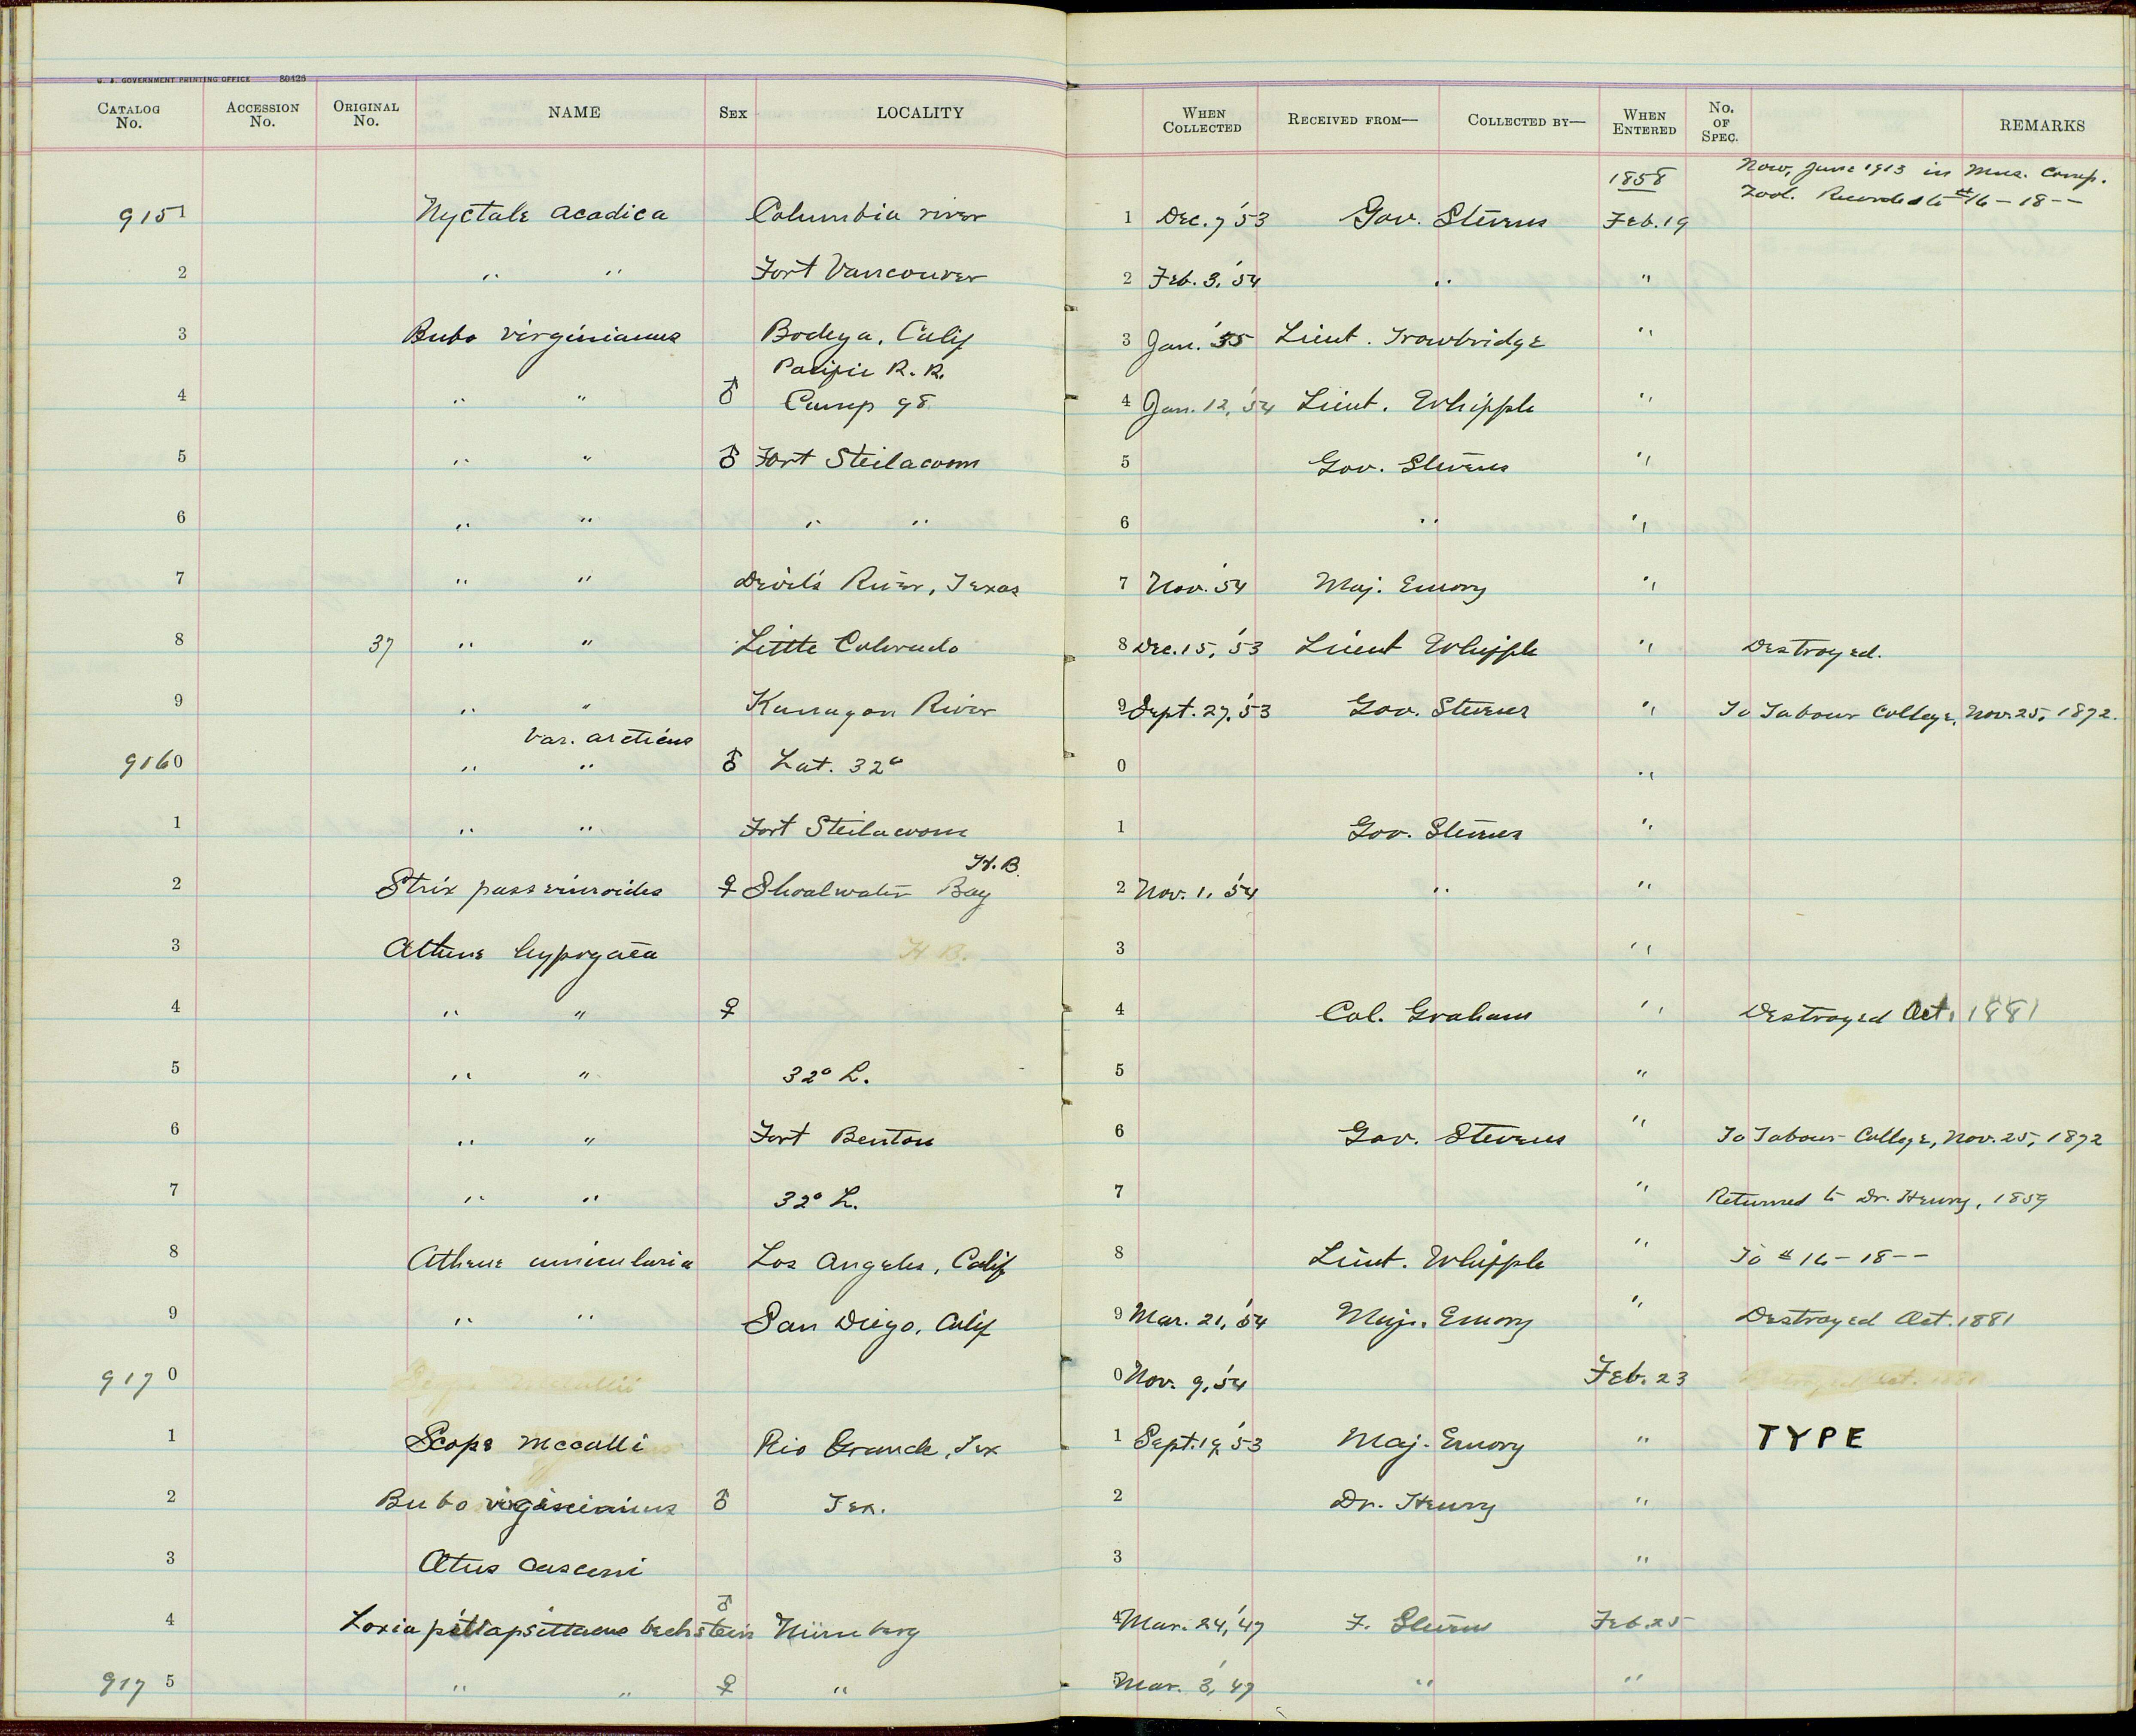 U. S. GOVERNMENT PRINTING OFFICE 80426
CATALOG No. ACCESSION No. ORIGINAL No. NAME SEX LOCALITY WHEN COLLECTED RECEIVED FROM— COLLECTED BY— WHEN ENTERED No. OF SPEC. REMARKS
1858 Now, June 1913 in Mus. Comp.
Zool. Recorded to #16 – 18 – –
9151 Nyctale acadica Columbia river 1 Dec. 7 '53 Gov. Stevens Feb. 19
2 " " Fort Vancouver 2 Feb. 3, '54 " "
3 Bubo virginianus Bodega, Calif 3 Jan. '55 Lieut. Trowbridge "
Pacific R. R.
4 " " ♂ Camp 98 4 Jan. 12, '54 Lieut. Whipple "
5 " " ♂ Fort Steilacoom 5 Gov. Stevens "
6 " " " " 6 " "
7 " " Devil's River, Texas 7 Nov. '54 Maj. Emory "
8 37 " " Little Colorado 8 Dec. 15, '53 Lieut Whipple " Destroyed.
9 " " River 9 Sept. 27, '53 Gov. Stevens " To Tabour College, Nov. 25, 1872.
var. arcticus
9160 " " ♂ Lat. 32° 0 "
1 " " Fort Steilacoom 1 Gov. Stevens "
H. B.
2 Strix passerinoides ♀ Shoalwater Bay 2 Nov. 1, '54 " "
3 Athene hypogaea H B. 3 "
4 " " ♀ 4 Col. Graham " Destroyed Oct. 1881
5 " " 32° L. 5 "
6 " " Fort Benton 6 Gov. Stevens " To Tabour College, Nov. 25, 1872
7 " " 32° L. 7 " Returned to Dr. Henry, 1859
8 Athene cunicularia Los Angeles, Calif 8 Lieut. Whipple " To # 16 – 18 – –
9 " " San Diego, Calif 9 Mar. 21, '54 Maj. Emory " Destroyed Oct. 1881
9170 0 Nov. 9, '54 Feb. 23
1 Scops mccalli Rio Grande, Tex 1 Sept. 19, '53 Maj. Emory " TYPE
2 Bubo virginianus ♂ Tex. 2 Dr. Henry "
3 Otus 3 "
♂
4 Loxia Bechstein Nürnberg 4 Mar. 24, '47 F. Sturm Feb. 25
9175 " " ♀ " 5 Mar. 3, '47 " "